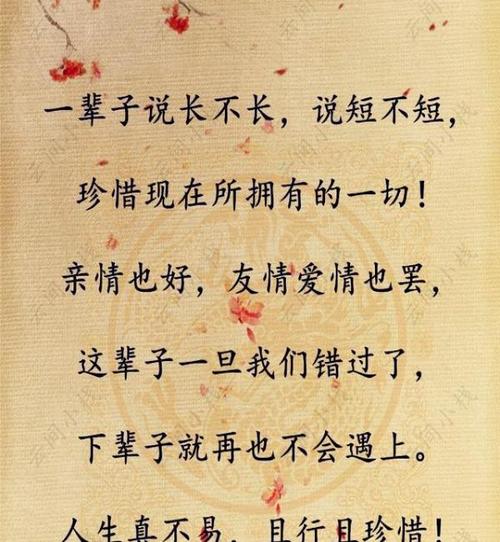 一辈子说长不长，说短不短，
珍惜现在所拥有的一切！
亲情也好，友情爱情也罢，
这辈子一旦我们错过了，
下辈子就再也不会遇上。
人生真不易，且行且珍惜！
云间小栈